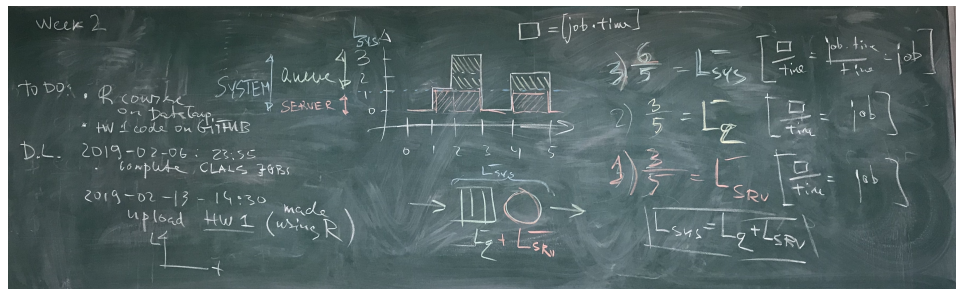 Week 2
TO DO:
• R course
on DataCamp
• HW 1 code on GITHUB
D.L. 2019-02-06: 23:55
• Complete
2019-02-13 - 14:30
upload HW1 (made using R)
L
t
SYSTEM
Queue
SERVER
Lsys
3
2
1
0
0 1 2 3 4 5
Lsys
Lq + LSRV
□ = [job·time]
3) 6/5 = Lsys [□/time = job·time/time = job]
2) 3/5 = Lq [□/time = job]
1) 3/5 = LSRV [□/time = job]
Lsys = Lq + LSRV